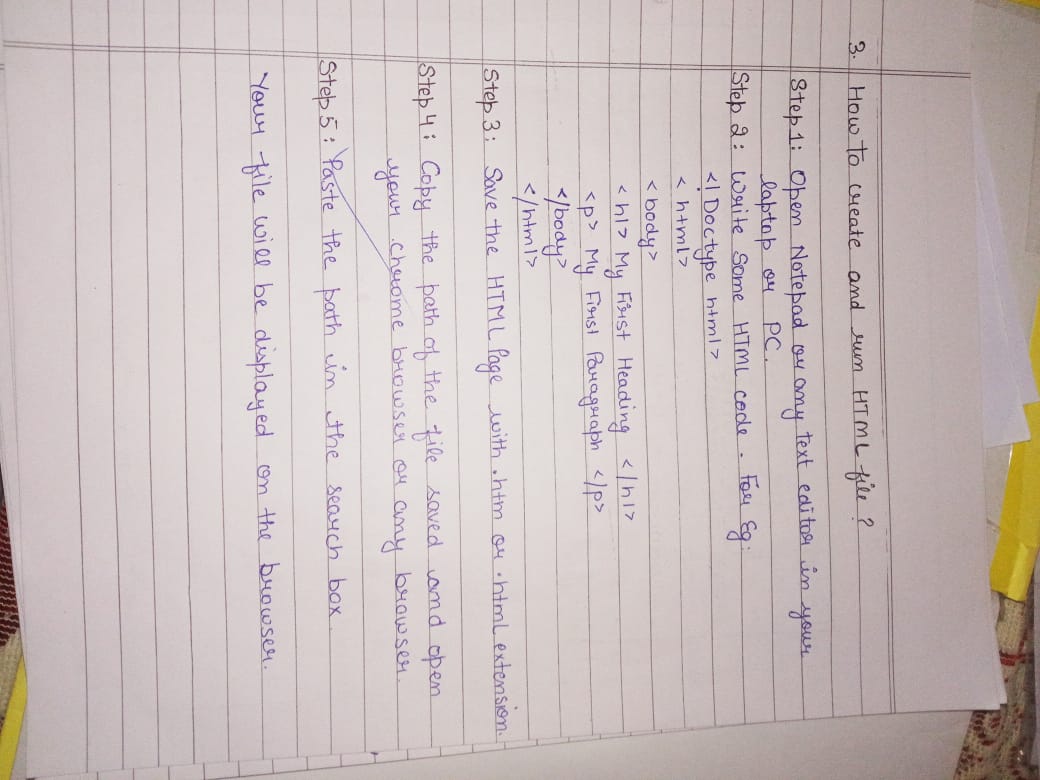 3. How to create and run HTML file?
Step 1: Open Notepad or any text editor in your
laptop or PC.
Step 2: Write Some HTML code. For Eg:
<! Doctype html>
<html>
<body>
<h1> My First Heading </h1>
<p> My First Paragraph </p>
</body>
</html>
Step 3: Save the HTML Page with .htm or .html extension.
Step 4: Copy the path of the file saved and open
your chrome browser or any browser.
Step 5: Paste the path in the search box.
Your file will be displayed on the browser.